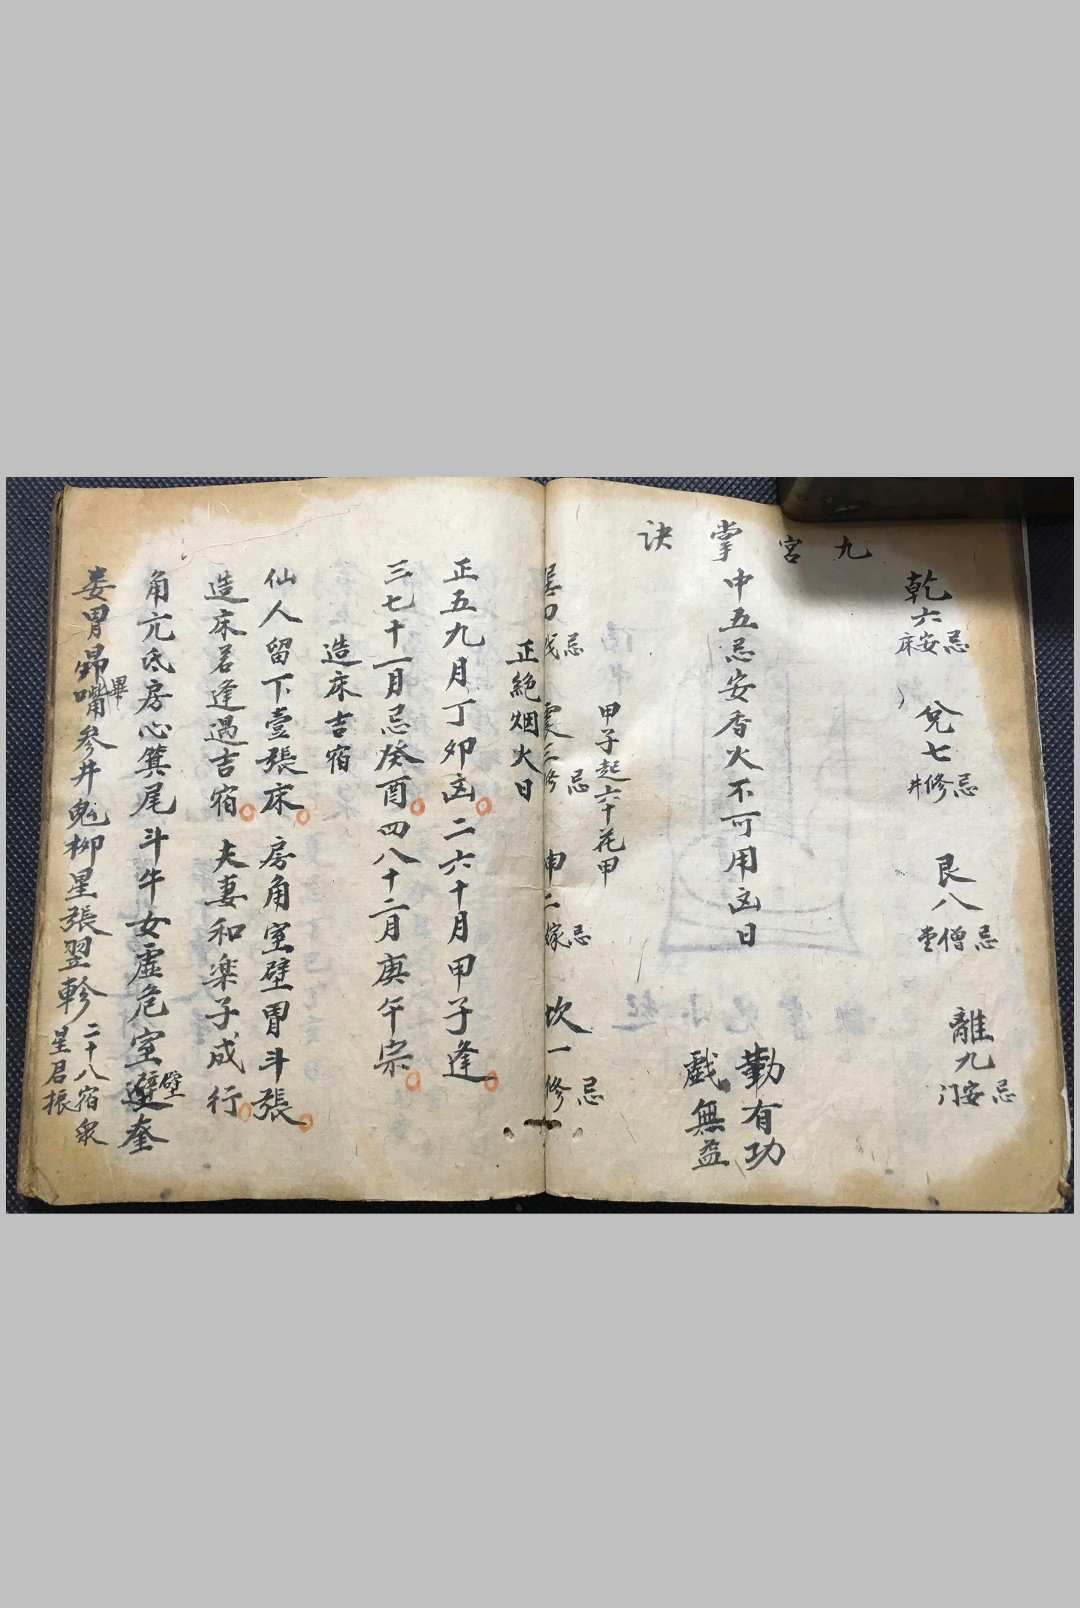 九宮掌訣
乾六忌安床
兌七忌修井
艮八忌僧堂
離九忌安门
中五忌安香火不可用凶日
勤有功
戲無益
甲子起六十花甲
忌
震三修忌
忌嫁
坎一修忌
正絕烟火日
正五九月丁卯凶二六十月甲子逢
三七十一月忌癸酉四八十二月庚午宗
造床吉宿
仙人留下壹張床房角室壁胃斗張
造床若逢遇吉宿夫妻和楽子成行
角亢氐房心箕尾斗牛女虛危室壁奎
婁胃昴畢嘴參井鬼柳星張翌軫二十八宿眾星君振